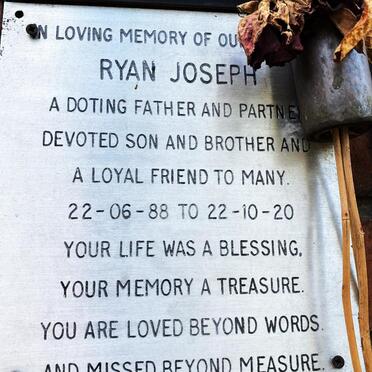 IN LOVING MEMORY OF OUR
RYAN JOSEPH
A DOTING FATHER AND PARTNER
DEVOTED SON AND BROTHER AND
A LOYAL FRIEND TO MANY.
22-06-88 TO 22-10-20
YOUR LIFE WAS A BLESSING,
YOUR MEMORY A TREASURE.
YOU ARE LOVED BEYOND WORDS.
AND MISSED BEYOND MEASURE.